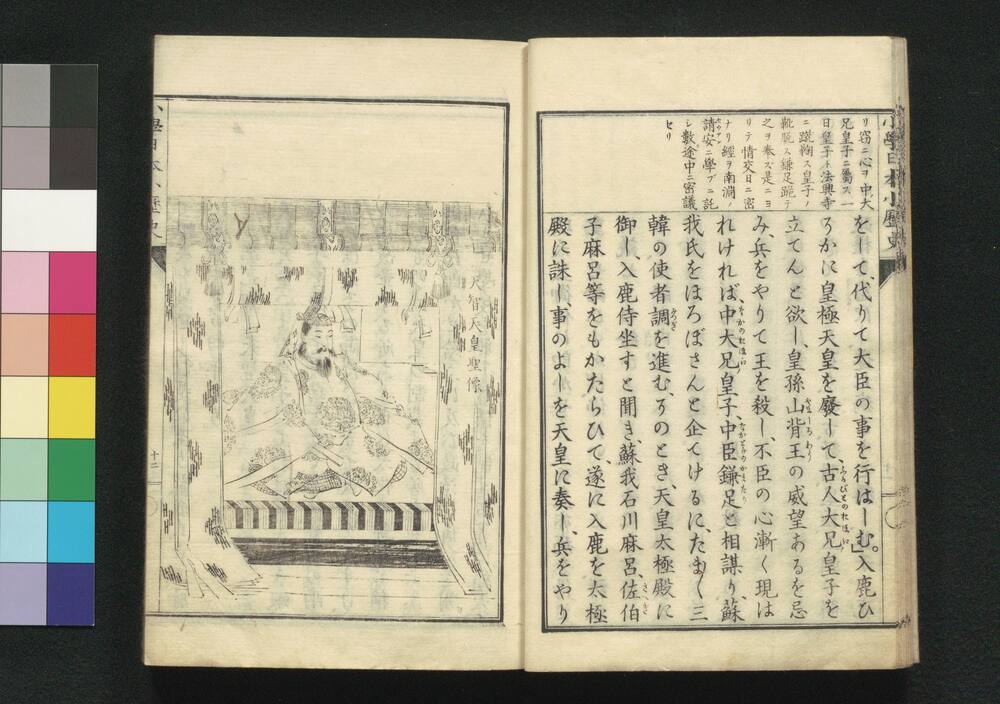 小學日本小歴史
リ窃ニ心ヲ中大
兄皇子ニ屬ス一
日皇子ト法興寺
ニ蹴鞠ス皇子ノ
靴脱ス鎌足跪テ
之ヲ奉ズ是ニヨ
リテ情交日ニ密
ナリ經ヲ南淵ノ
請安ニ學ブニ託
シ數途中ニ密議
セリ
をして、代りて大臣の事を行はしむ。」入鹿ひ
そかに皇極天皇を廢して、古人大兄皇子を
立てんと欲し、皇孫山背王の威望あるを忌
み、兵をやりて王を殺し、不臣の心漸く現は
れければ、中大兄皇子、中臣鎌足と相謀り、蘇
我氏をほろぼさんと企てけるに、たま〱三
韓の使者調を進む、そのとき、天皇太極殿に
御し、入鹿侍坐すと聞き、蘇我石川麻呂、佐伯
子麻呂等をもかたらひて、遂に入鹿を太極
殿に誅し、事のよしを天皇に奏し、兵をやり
天智天皇聖像
小學日本小歴史
十二